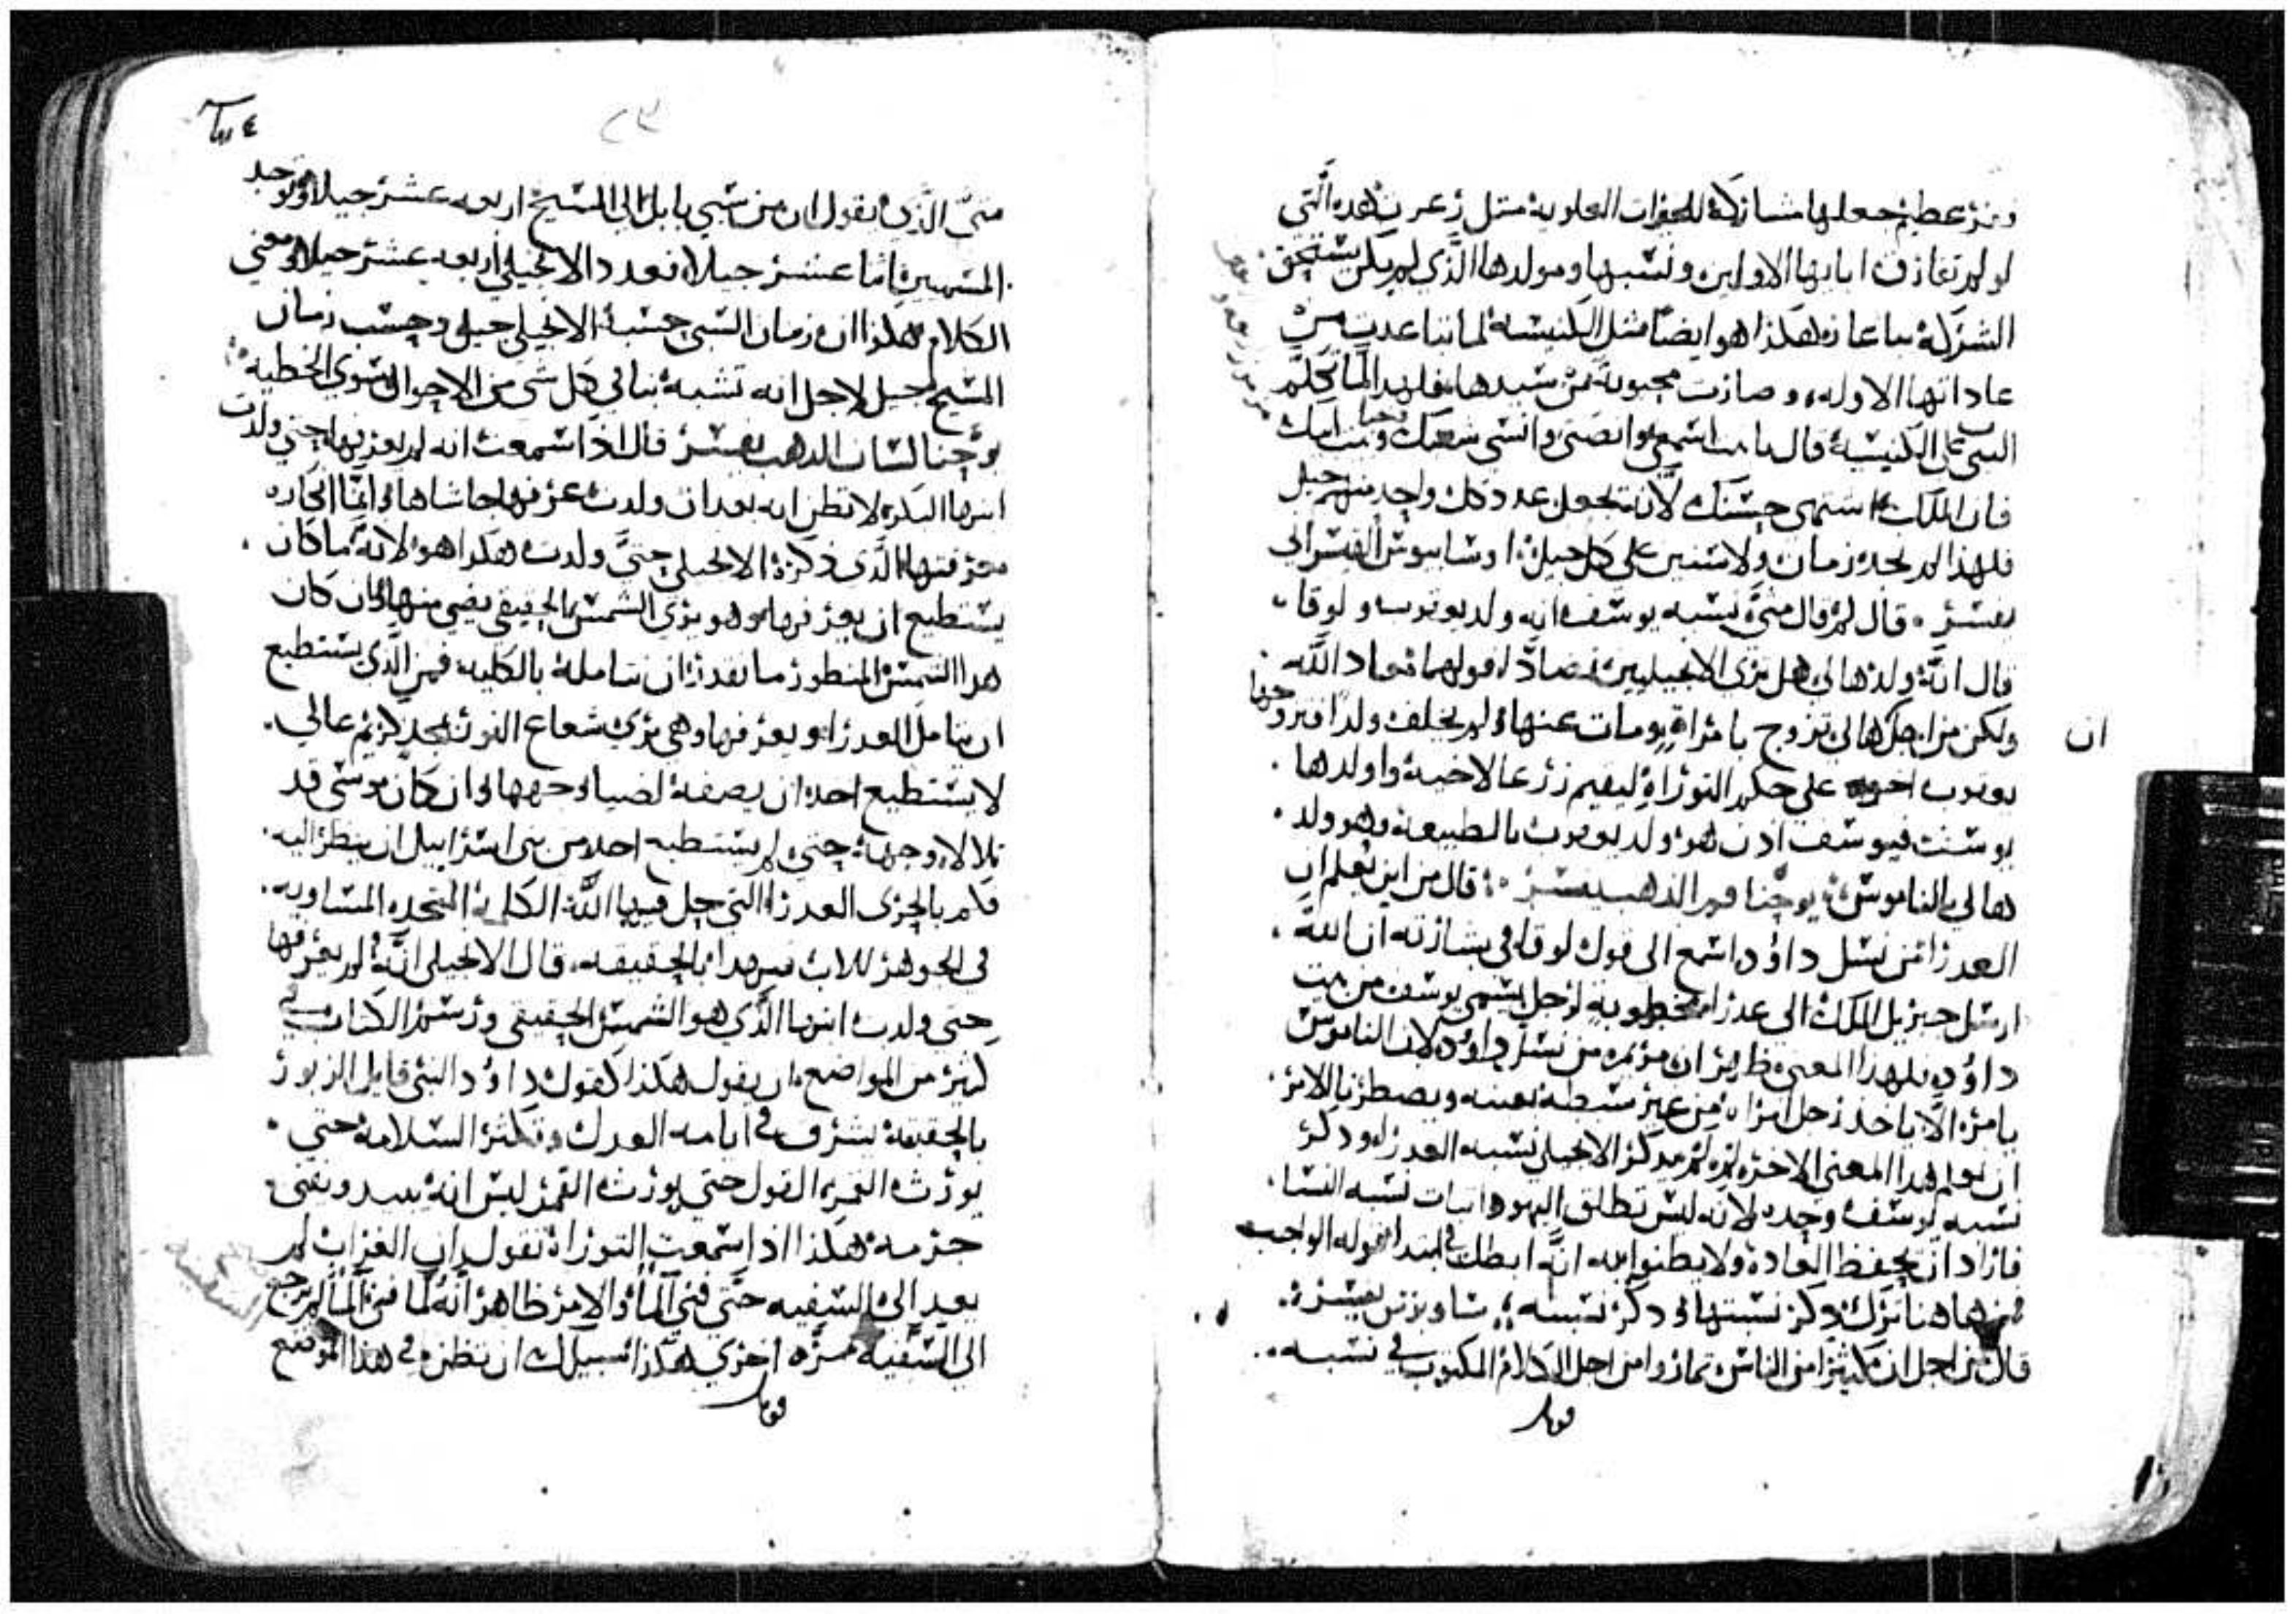 ومر عطيم جعلها مشاركة للخيرات العلوية متل زعر هده الَّتى
لو لم تفارق اباىها الاولين ونسبها ومولدها الَّذي لم يكن يستحق
الشركة هكذا هو ايضًا مثل الكنيسة لما تباعدت من
عاداتها الاوله وصارت محبوبة من سيدها فلهدا لما تكلّم
النبي على الكنيسة قال يا بنت اسمعي وانصتى وانسى شعبك وبيت ابيك
فان الملك اشتهى حسنك لان تجعل عدد كل واحد منهم جيل
فلهذا لم يحد زمان ولا سنين على كل جيل اوسابيوس القيسراني
يفسر قال لم قال متىَّ نسبه يوسف انه ولد يعقوب ولوقا
قال انَّه ولد هالي هل ترى الانجيليين تضادَّا قولهما معاد اللَّه
ولكن من اجل ان هالي تزوج بامراةٍ ومات عنها ولم يخلف ولدًا فتزوجها
يعقوب اخوه على حكم التوراة ليقيم زرعا لاخيه واولدها
يوسف فيوسف ادن هو ولد يعقوب بالطبيعة وهو ولد
هالي بالناموس يوحنا فم الذهب يفسر قال من اين نعلم ان
العدرا من نسل داوُد اسمع الى قول لوقا في بشارته ان الله
ارسل جبريل الملك الى عدرا مخطوبه لرجل يسمى يوسف من بيت
داوُد فلهذا المعنى ظاهر ان مريم من نسل داوُد لان الناموس
يامر الَّا ياخذ رجل امراة من غير سبطه بعينه ويضطر بالامر
ان نعلم هدا المعنى الاخر لِمَ لم يدكر الانجيلي نسبه العدرا ودكر
نسبه يوسف وحده لانه ليس تطلق اليهود اتبات نسبه النسا
فاراد ان يحفظ العادة ولا يظنوا به انَّه ابطل في ابتدا قوله الواجب
فمن هاهنا ترك دكر نسبتها ودكر نسبته ساويرس يفسر
قال من اجل ان كثيرًا من الناس تماروا من اجل الكلام المكتوب في نسبه
قوبل
متىَّ الَّذى يقول ان من سبي بابل الى المسيح اربعه عشر جيلا وتوجد
المسميين اثنا عشر جيلا فعدد الانجيلي اربعه عشر جيلا ومعنى
الكلام هكذا ان زمان السبى حسبه الانجيلي جيل وحسب زمان
المسيح جيل لاجل انه تشبه بنا في كل شى من الاحوال سوى الخطيه
يوحنا لسان الدهب يفسر قال اذا سمعت انه لم يعرفها حتى ولدت
ابنها البكر لا تظن انه بعد ان ولدت عرفها حاشاها وانمّا
معرفتها الَّذى ذكره الانجيلي حتىَّ ولدت هكدا هو لانَّه ما كان
يستطيع ان يعرفها وهو يرى الشمس الحقيقى يضى منها وان كان
هدا الشمس المنظور ما نقدر ان نتامله بالكليه فمن الَّذى يستطيع
ان يتامل العدرا ويعرفها وهى ترى شعاع النور بمجد كريم عالي
لا يستطيع احد ان يصفه لضياء وجهها وان كان موسى قد
تلالا وجهه حتى لم يستطيع احد من بنى اسرايل ان ينظر اليه
فكم بالحرى العدرا التى حل فيها اللَّه الكلمة المتحده المساويه
فى الجوهر للاب فبهدا بالحقيقه قال الانجيلى انَّه لم يعرفها
حتى ولدت ابنها الَّذى هو الشمس الحقيقى ورسم الكتاب في
كثير من المواضع ان يقول هكذا كقول داوُد النبى قايل الزبور
بالحقيقة يشرق في ايامه العدل وتكثر السلامة حتى
يورث القمر القول حتى يورث القمر ليس انه يبيد ويفنى
جرمه هكذا اذا سمعت التوراة تقول ان الغراب لم
يعد الى السفينه حتَّى فنى المآ والامر ظاهر انه لمَّا فنى المآ لم يرجع
الى السَّفينه مرَّه اخرى هكذا سبيلك ان تظن في هذا الموضع
قوبل